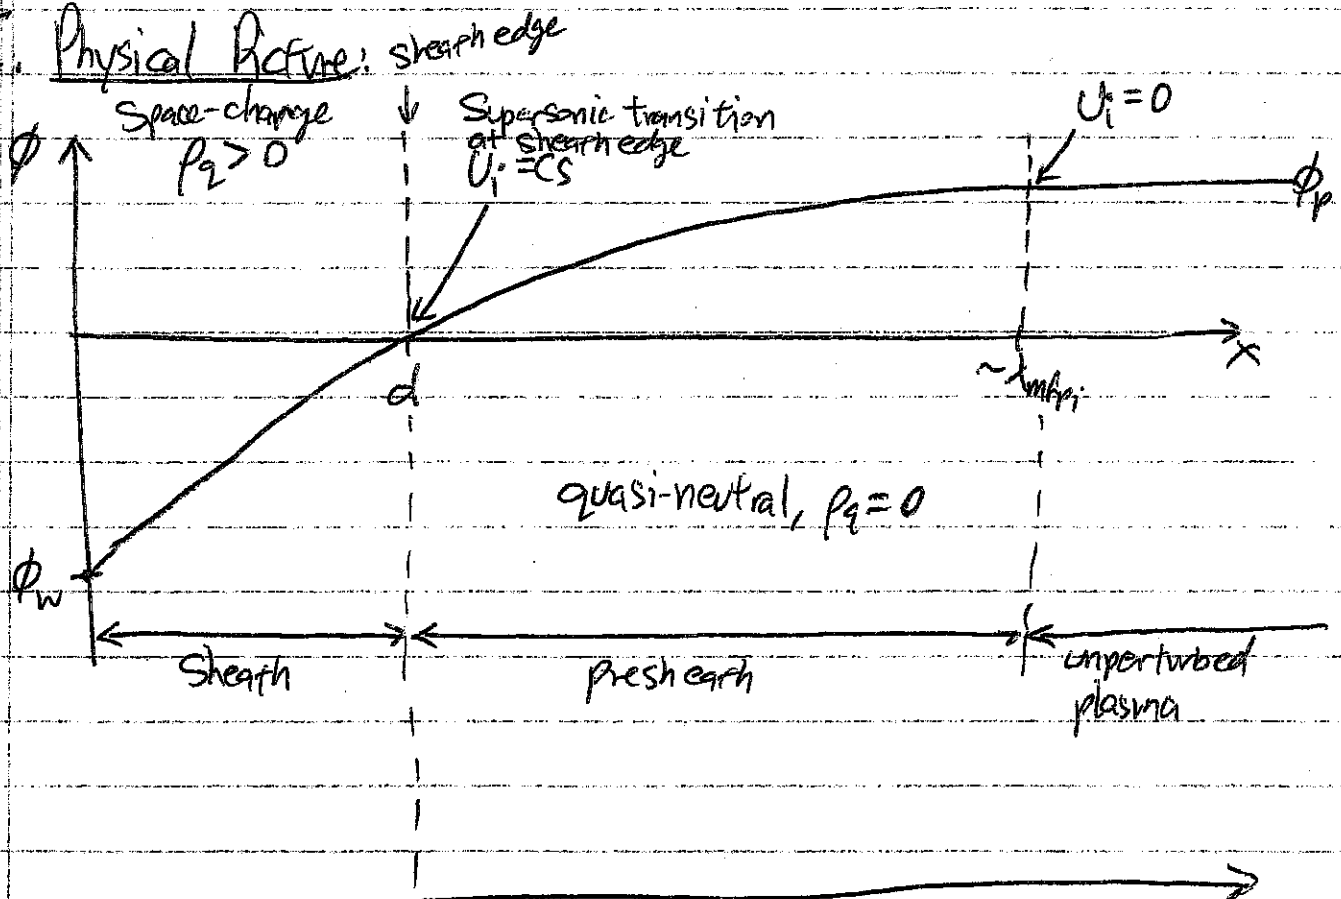 Physical Picture:
sheath edge
Space-charge
ρq > 0
Supersonic transition
at sheath edge
Ui = Cs
Ui = 0
ϕ
ϕp
x
d
~λmfpi
quasi-neutral, ρq = 0
ϕw
Sheath
presheath
unperturbed
plasma